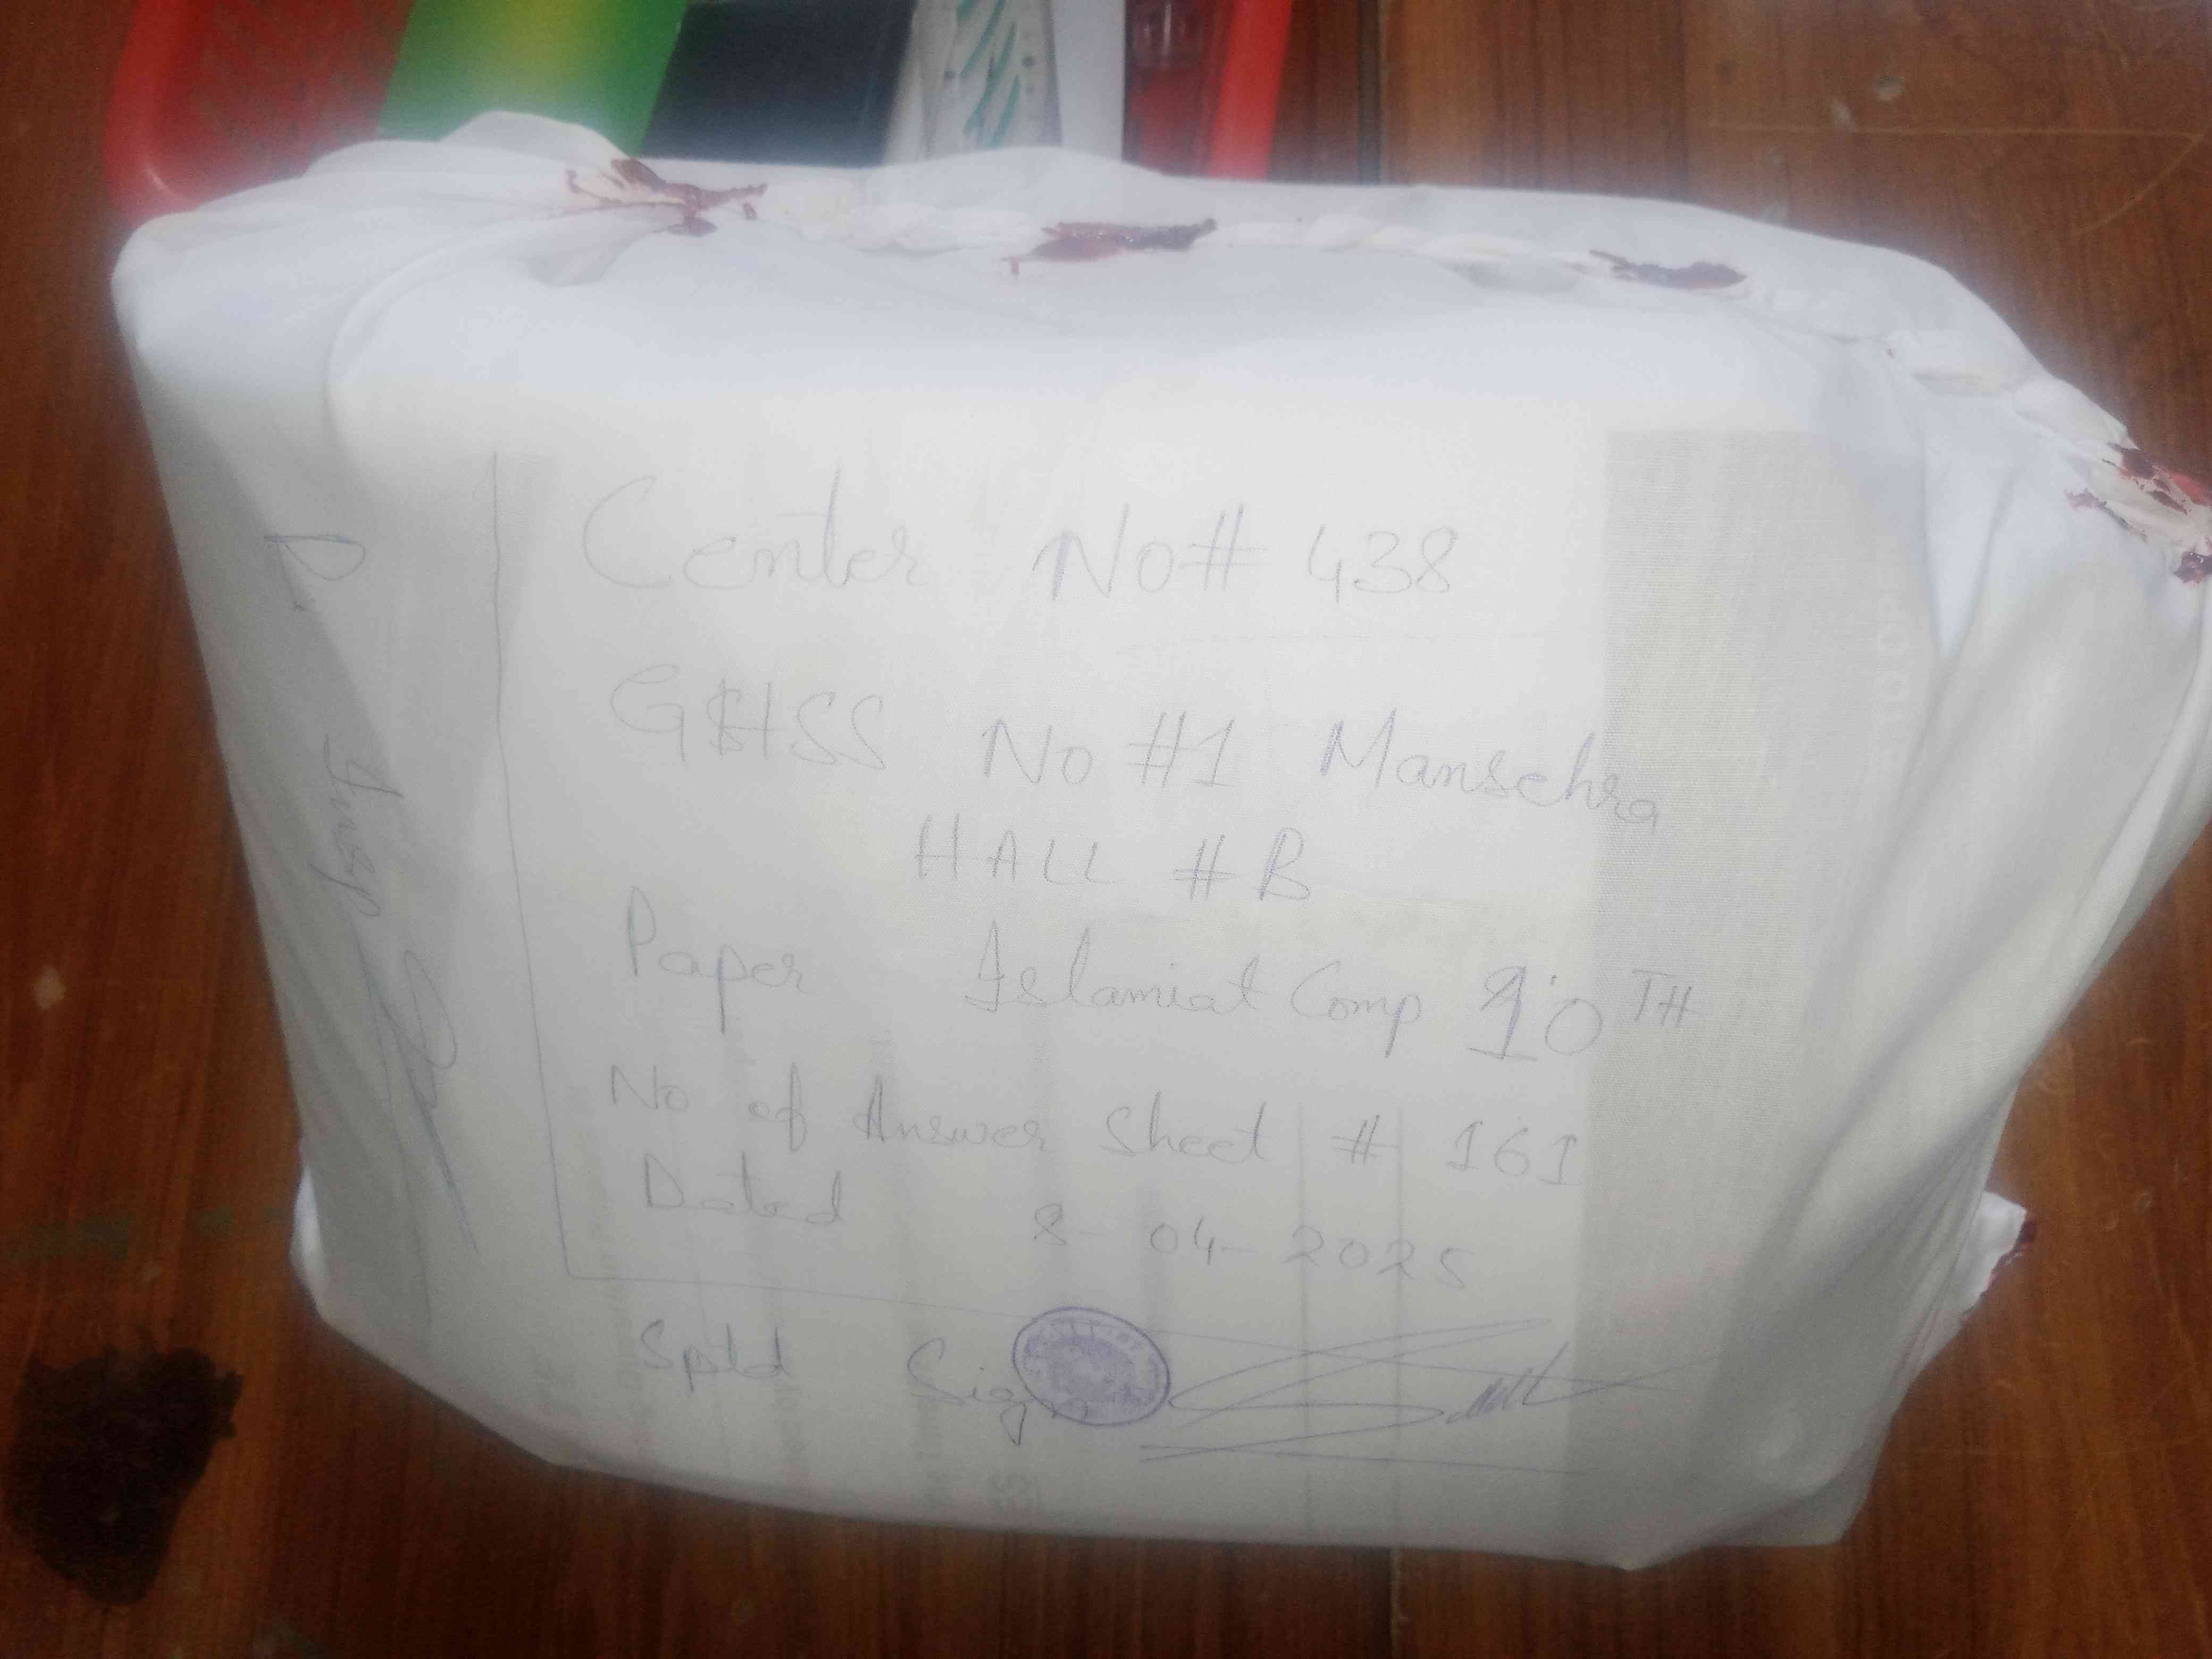 Center No # 438
GHSS No #1 Mansehra
HALL # B
Paper Islamiat Comp 10TH
No of Answer Sheet # 161
Dated 8-04-2025
Sptd Sign
Insp